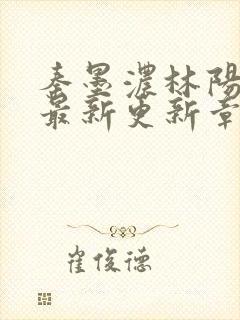 秦墨濃林陽
最新更新章
崔俊德